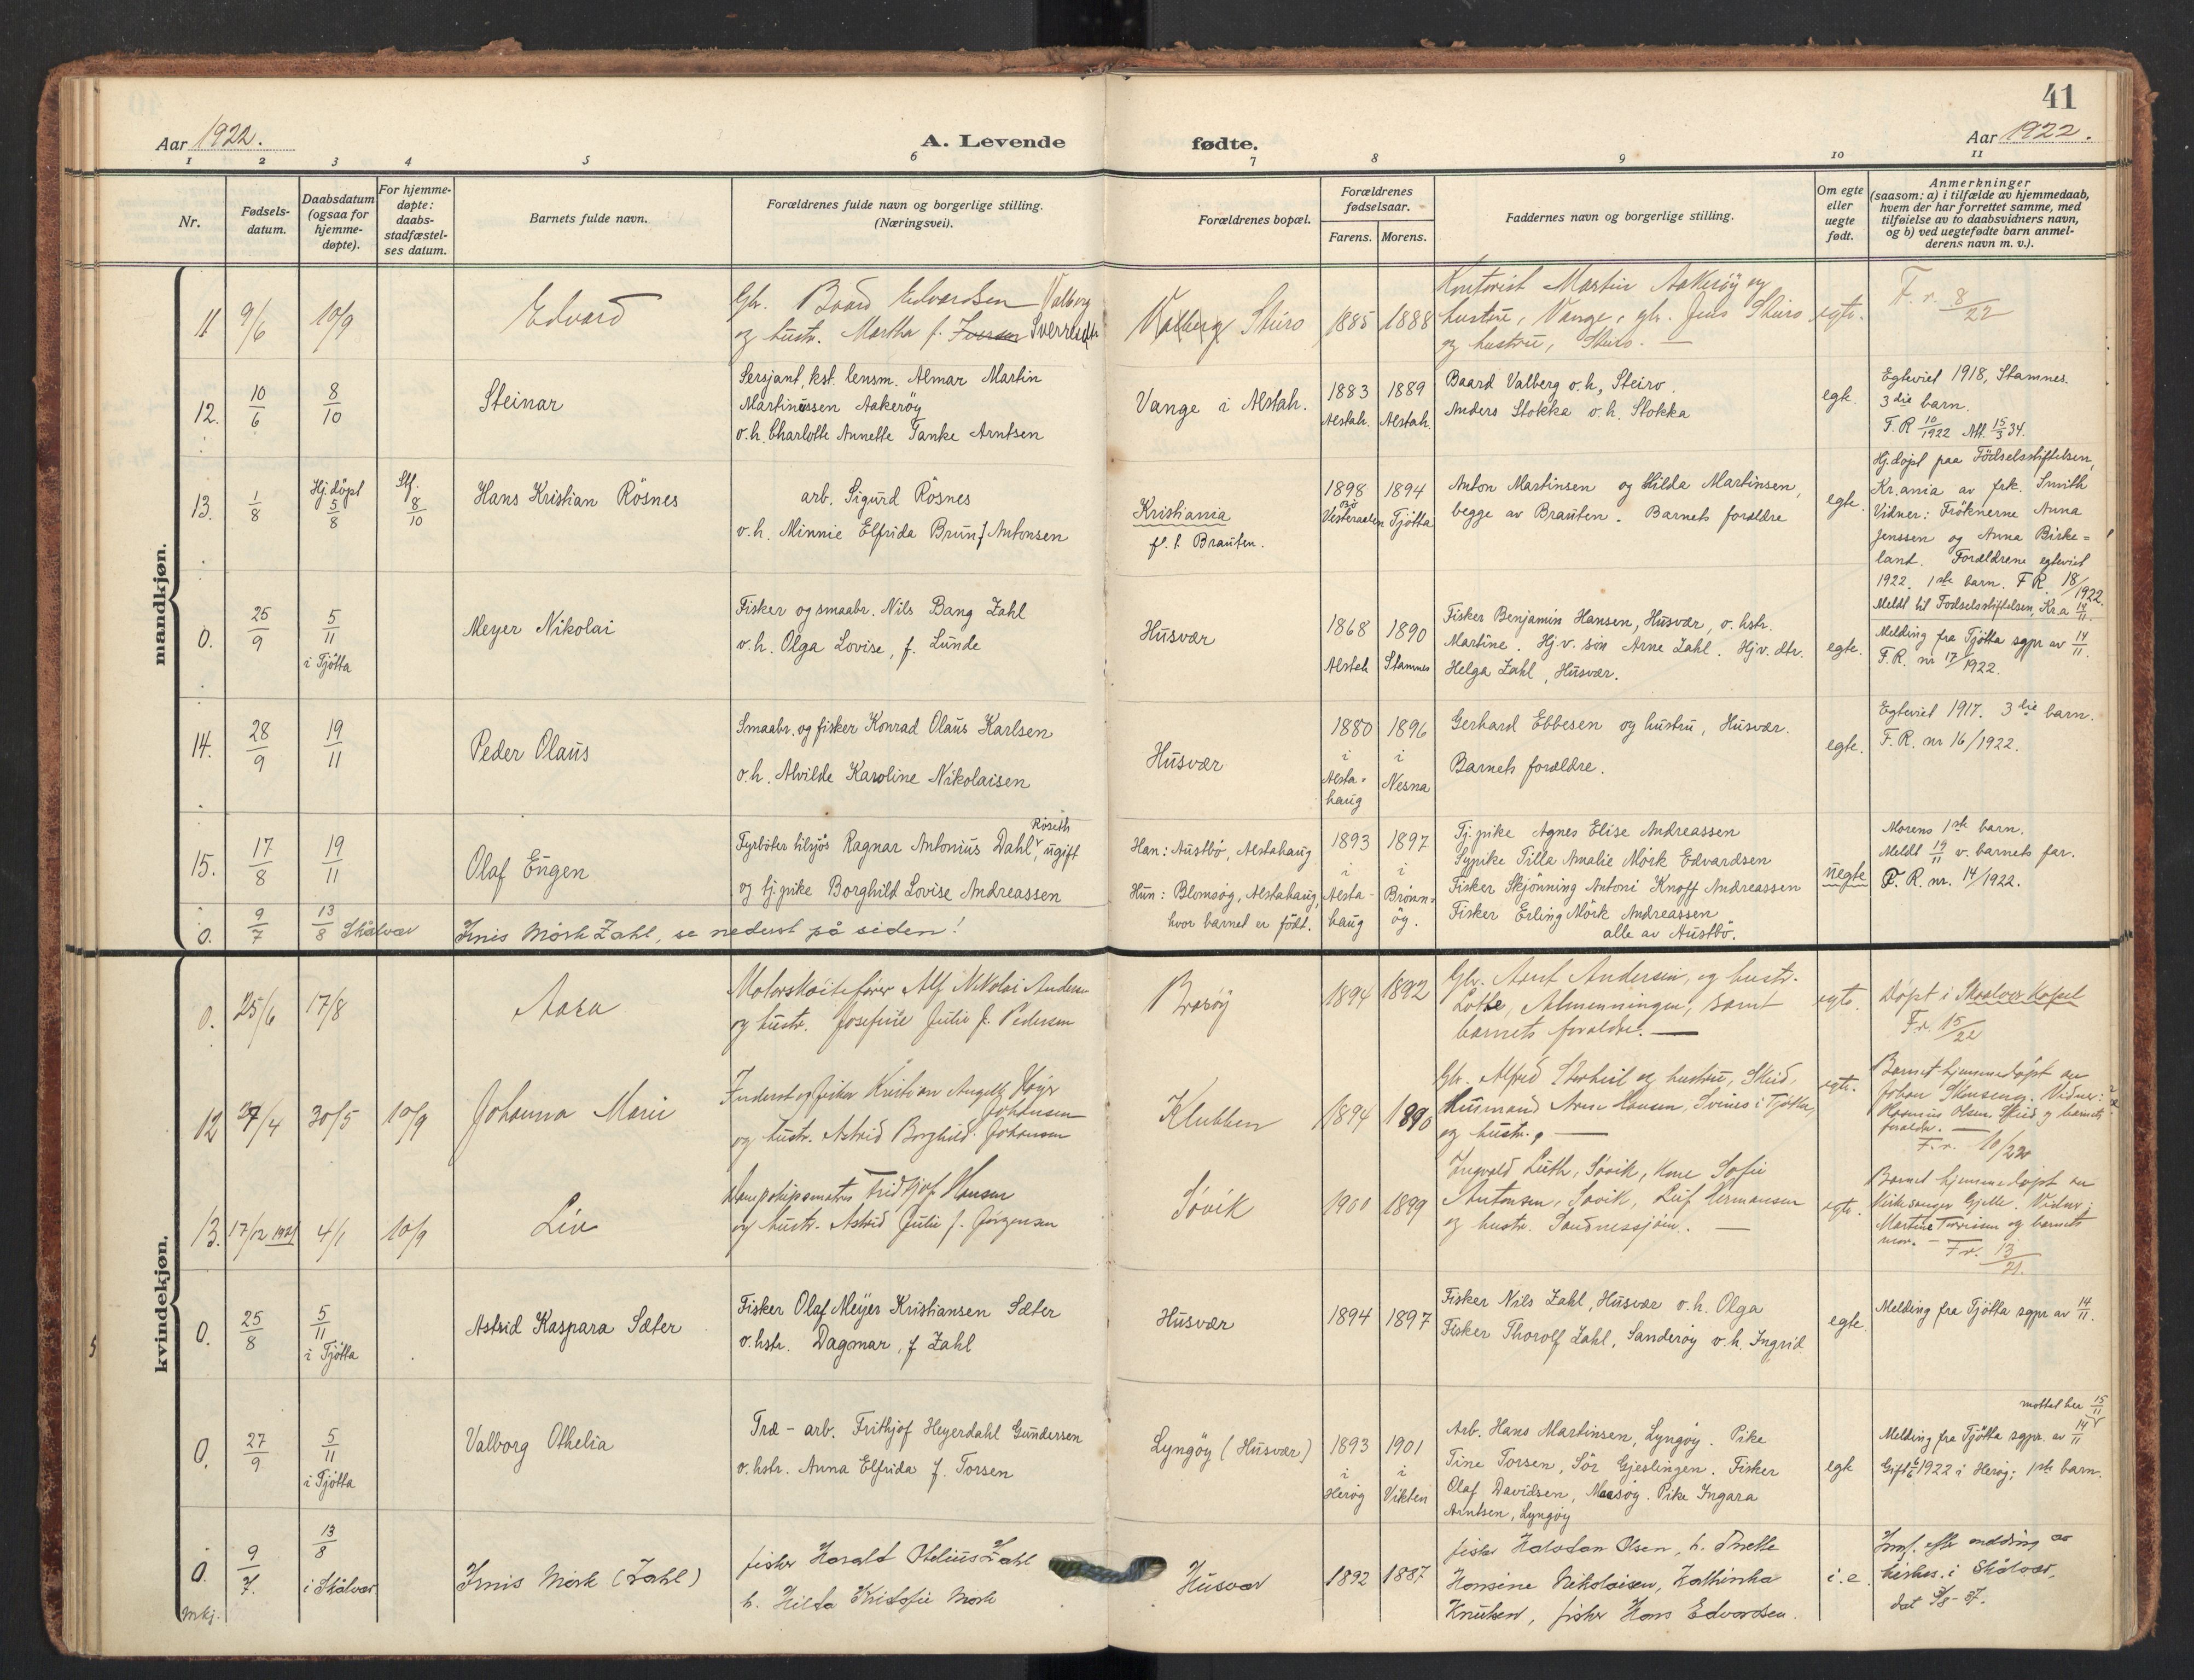 41
Aar 1922.
A. Levende fødte.
Aar 1922.
1 2 3 4 5 6 7 8 9 10 11
Nr.
Fødsels-
datum.
Daabsdatum
(ogsaa for
hjemme-
døpte).
For hjemme-
døpte:
daabs-
stadfæstel-
ses datum.
Barnets fulde navn.
Forældrenes fulde navn og borgerlige stilling.
(Næringsvei).
Forældrenes bopæl.
Forældrenes
fødselsaar.
Farens. Morens.
Faddernes navn og borgerlige stilling.
Om egte
eller
uegte
født.
Anmerkninger
(saasom: a) i tilfælde av hjemmedaab,
hvem der har forrettet samme, med
tilføielse av to daabsvidners navn,
og b) ved uegtefødte barn anmel-
derens navn m. v.).
mandkjøn.
11 9/6 10/9
Edvard
Gbr. Baard Edvardsen Valberg
og hustr. Martha f. Iversen Sverresdtr
Valberg Stiro
1885 1888
Kontorist Martin Aakerøy og
hustru, Vange, gbr. Jens Stiro
og hustru, Stiro. —
egte.
F. r. 8/22
12. 10/6 8/10
Steinar
Sersjant, kst. lensm. Almar Martin
Martinussen Aakerøy
o.h. Charlotte Annette Tanke Arntsen
Vange i Alstah.
1883 Alstah. 1889 Alstah.
Baard Valberg o.h., Steiro.
Anders Stokka o.h. Stokka
egte.
Egteviet 1918, Stamnes.
3die barn.
F. R 10/1922 Att. 15/3 34.
13. 1/8 Hj.döpt 5/8 Stf. 8/10
Hans Kristian Rösnes
arb. Sigurd Rösnes
o.h. Minnie Elfrida Brun f Antonsen
Kristiania
f. t. Brauten.
1898 Bø Vesteraalen 1894 Tjøtta
Anton Martinsen og Hilda Martinsen,
begge av Brauten. Barnets forældre
egte.
Hj.døpt paa Födselsstiftelsen,
Kr.ania av frk. Smith
Vidner: Fröknerne Anna
Jenssen og Anna Birke=
land. Forældrene egteviet
1922. 1ste barn. F R. 18/1922.
Meldt til Fødselsstiftelsen, Kr.a 14/11.
0. 25/9 5/11 i Tjøtta
Meyer Nikolai
Fisker og smaabr. Nils Bang Zahl
o.h. Olga Lovise, f. Lunde
Husvær
1868 Alstah 1890 Stamnes
Fisker Benjamin Hansen, Husvær, o. hstr.
Martine. Hj.v. søn Arne Zahl. Hjv. dtr.
Helga Zahl, Husvær.
egte.
Melding fra Tjøtta sgpr av 14/11.
F. R. nr 17/1922.
14. 28/9 19/11
Peder Olaus
Smaabr. og fisker Konrad Olaus Karlsen
o.h. Alvilde Karoline Nikolaisen
Husvær
1880 i Alsta-haug 1896 i Nesna
Gerhard Ebbesen og hustru, Husvær.
Barnets forældre.
egte.
Egteviet 1917. 3die barn.
F. R. nr 16/1922.
15. 17/8 19/11
Olaf Eugen
Røseth
Fyrböter tilsjøs Ragnar Antonius Dahl, ugift
og tj.pike Borghild Lovise Andreassen
Han: Austbø, Alstahaug
Hun: Blomsøg, Alstahaug,
hvor barnet er födt.
1893 i Alsta-haug 1897 i Brønn-øy.
Tj.pike Agnes Elise Andreassen
Sypike Tilla Amalie Mörk Edvardsen
Fisker Skjønning Antoni Knoff Andreassen
Fisker Erling Mörk Andreassen
alle av Austbø.
uegte
Morens 1ste barn.
Meldt 19/11 v. barnets far.
F. R. nr. 14/1922.
0. 9/7 13/8 Skålvær
Innis Mørk Zahl, se nederst på siden!
kvindekjøn.
0. 25/6 17/8
Aasa
Motorskøitefører Alf Nikolai Andersen
og hustr. Josefine Julie f. Pedersen
Brasøy
1894 1892
Gbr. Arnt Andersen, og hustr.
Lotte, Almenningen, samt
barnets forældre. —
egte.
Døpt i Skaalvær Kapel
F.r. 15/22
12 27/4 30/5 10/9
Johanna Marie
Inderst og fisker Kristian Angell Høyr
Johansen
og hustr. Astrid Borghild Johansen
Klubben
1894 1890
Gbr. Alfred Storheil og hustru, Skeid,
Husmand Arne Hansen, Svines i Tjøtta,
og hustr. —
egte.
Barnet hjemmedøpt av
Johan Stenseng. Vidner:
Rasmus Olsen Skeid og barnets
forældre. —
F. r. 10/22
13. 17/12 1921 4/1 10/9
Liv
Dampskipsmatros Fridtjof Hansen
og hustr. Astrid Julie f. Jørgensen
Søvik
1900 1899
Ingvald Luth, Søvik, Kone Sofie
Antonsen, Søvik, Leif Hermansen
og hustr. Sandnessjøen. —
egte.
Barnet hjemmedøpt av
Kirkesanger Gjelle. Vidner:
Martine Torrissen og barnets
mor. — F.r. 13/21.
0. 25/8 5/11 i Tjøtta
Astrid Kaspara Sæter
Fisker Olaf Meyer Kristiansen Sæter
o.hstr. Dagmar, f Zahl
Husvær
1894 1897
Fisker Nils Zahl, Husvær o.h. Olga
Fisker Thorolf Zahl, Sanderøy o.h. Ingrid
egte.
Melding fra Tjøtta sgpr av 14/11.
0. 27/9 5/11 i Tjøtta
Valborg Othelia
Træ-arb. Frithjof Heyerdahl Gundersen
o.hstr. Anna Elfrida f. Torsen
Lyngøy (Husvær)
1893 i Herøy 1901 i Vikten
Arb. Hans Martinsen, Lyngøy. Pike
Tine Torsen, Sör Gjeslingen. Fisker
Olaf Davidsen, Maasøy. Pike Ingara
Arntsen, Lyngøy
egte
mottat her 15/11
Melding fra Tjøtta sgpr. av 14/11
Gift 1922 i Herøy; 1ste barn.
0. mkj. 9/7. 13/8 i Skålvær
Innis Mørk (Zahl)
fisker Harald Otelius Zahl
h. Hilda Kristofie Mørk
Husvær
1892 1887
fisker Halvdan Olsen, h. Anette
Hansine Nikolaisen, Kathinka
Knutsen, fisker Hans Edvardsen.
i.e.
Innf. efter melding av
kirkes. i Skålvær,